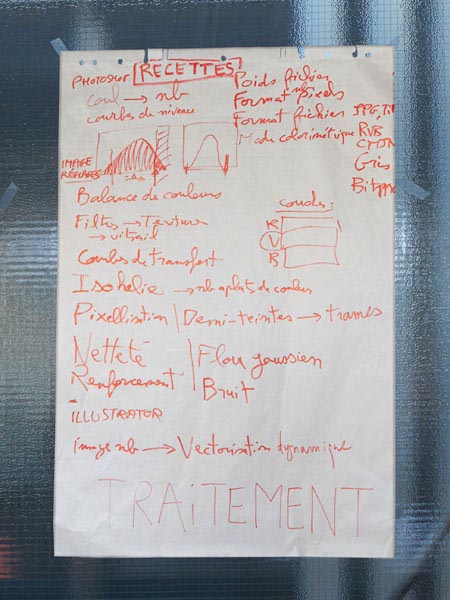 PHOTOSHOP RECETTES
Poids fichier
Format nb pixels
Format fichier JPG, Ti
Mode colorimétrique RVB
CMJN
Gris
Bitmap
Coul → nb
courbes de niveau
IMAGE
RÉGLAGES
Balance de couleurs
Filtres → Texture
→ vitrail
couches:
R
V
B
Courbes de transfert
Isohélie → nb aplats de couleurs
Pixellisation / Demi-teintes → trames
Netteté
Renforcement
Flou gaussien
Bruit
ILLUSTRATOR
image nb → Vectorisation dynamique
TRAiTEMENT